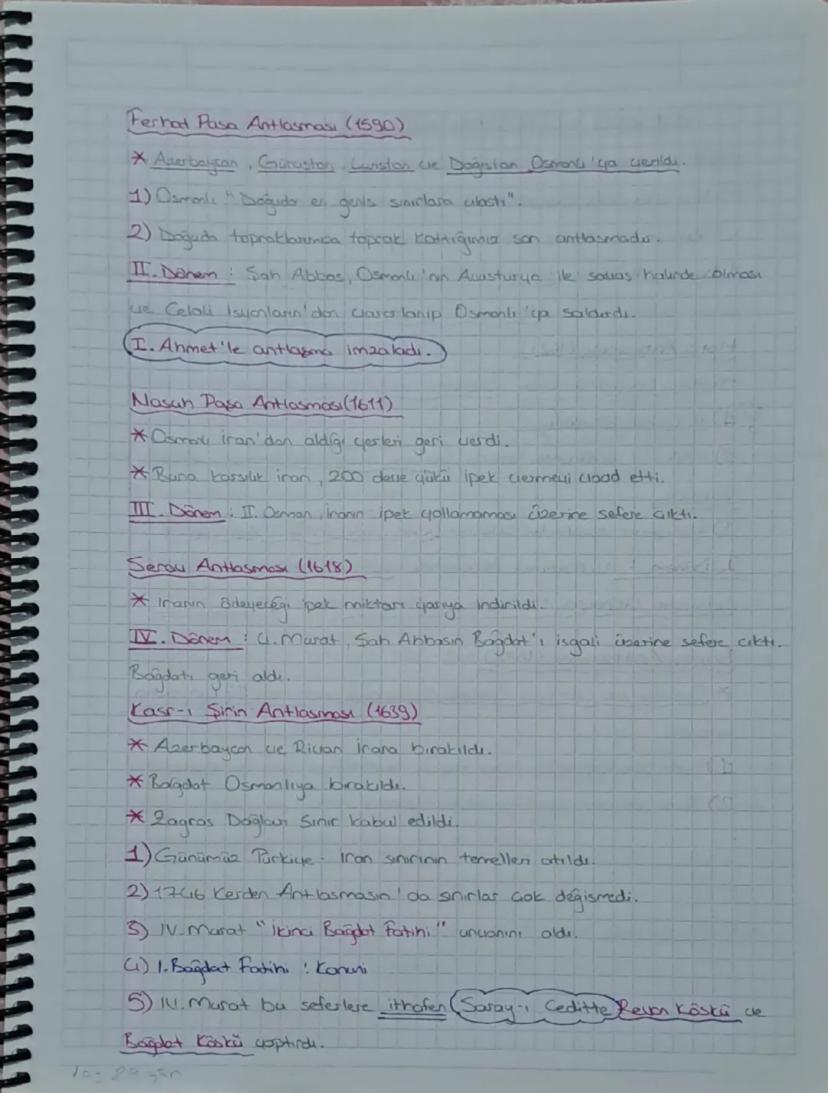 Ferhat Paşa Antlaşması (1590)
* Azerbaycan, Gürcistan, Luristan ve Dağıstan Osmanlı'ya verildi.
1) Osmanlı "Doğuda en geniş sınırlara ulaştı".
2) Doğuda topraklarımıza toprak kattığımız son antlaşmadır.
II. Dönem : Şah Abbas, Osmanlı'nın Avusturya ile savaş halinde olması
ve Celali İsyanların'dan yararlanıp Osmanlı'ya saldırdı.
I. Ahmet'le antlaşma imzaladı.
Nasuh Paşa Antlaşması (1611)
* Osmanlı İran'dan aldığı yerleri geri verdi.
* Buna karşılık İran, 200 deve yükü ipek vermeyi vaad etti.
III. Dönem : II. Osman, İranın ipek yollamaması üzerine sefere çıktı.
Serav Antlaşması (1618)
* İranın ödeyeceği ipek miktarı yarıya indirildi.
IV. Dönem : 4. Murat, Şah Abbasın Bağdat'ı işgali üzerine sefere çıktı.
Bağdatı geri aldı.
Kasr-ı Şirin Antlaşması (1639)
* Azerbaycan ve Revan İrana bırakıldı.
* Bağdat Osmanlıya bırakıldı.
* Zagros Dağları sınır kabul edildi.
1) Günümüz Türkiye - İran sınırının temelleri atıldı.
2) 1746 Kerden Antlaşmasın'da sınırlar çok değişmedi.
3) IV. Murat "İkinci Bağdat Fatihi" unvanını aldı.
4) 1. Bağdat Fatihi : Kanuni
5) IV. Murat bu seferlere ithafen Saray-ı Ceditte Revan Köşkü ve
Bağdat Köşkü yaptırdı.